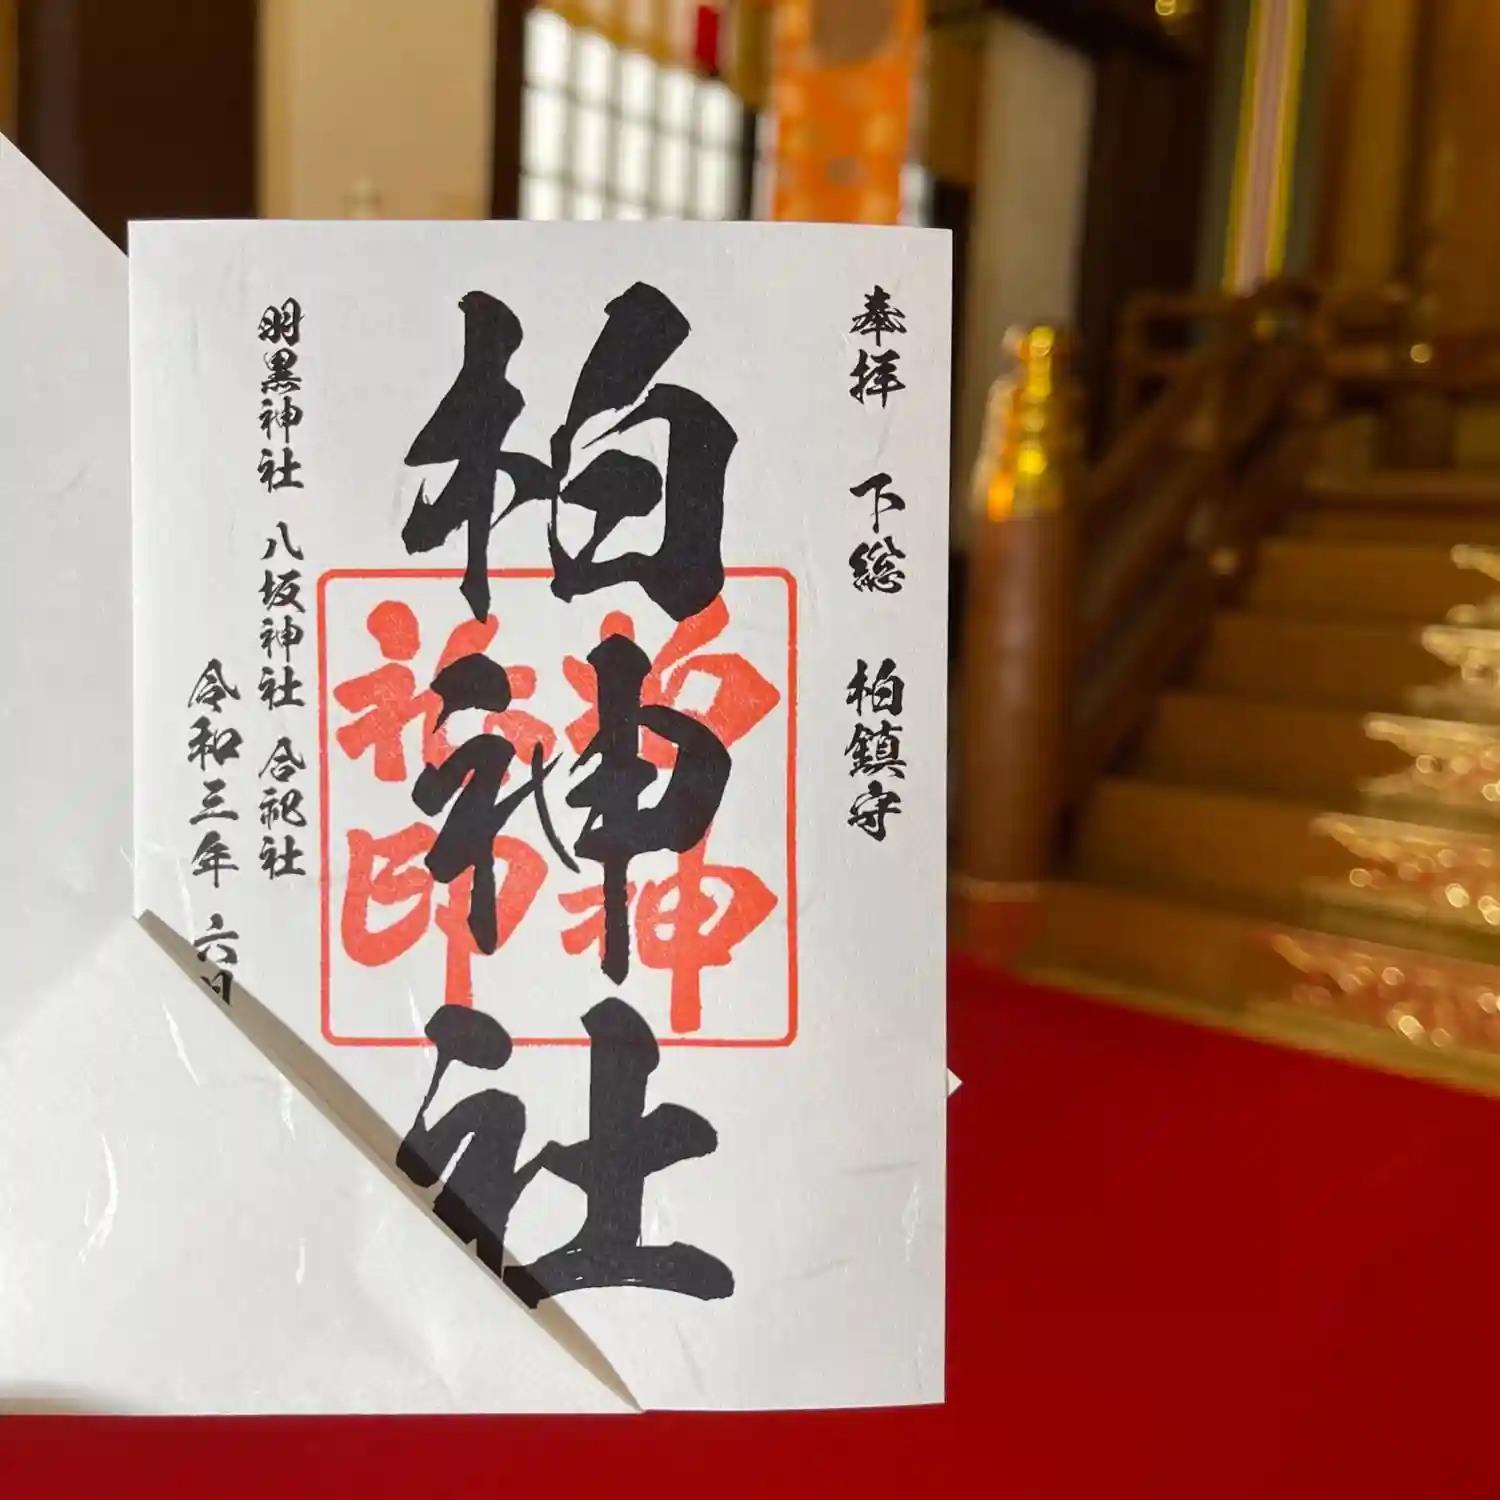 奉拝 下総 柏鎮守
柏神社
柏神
社印
明黒神社 八坂神社 合祀社
令和三年 六月